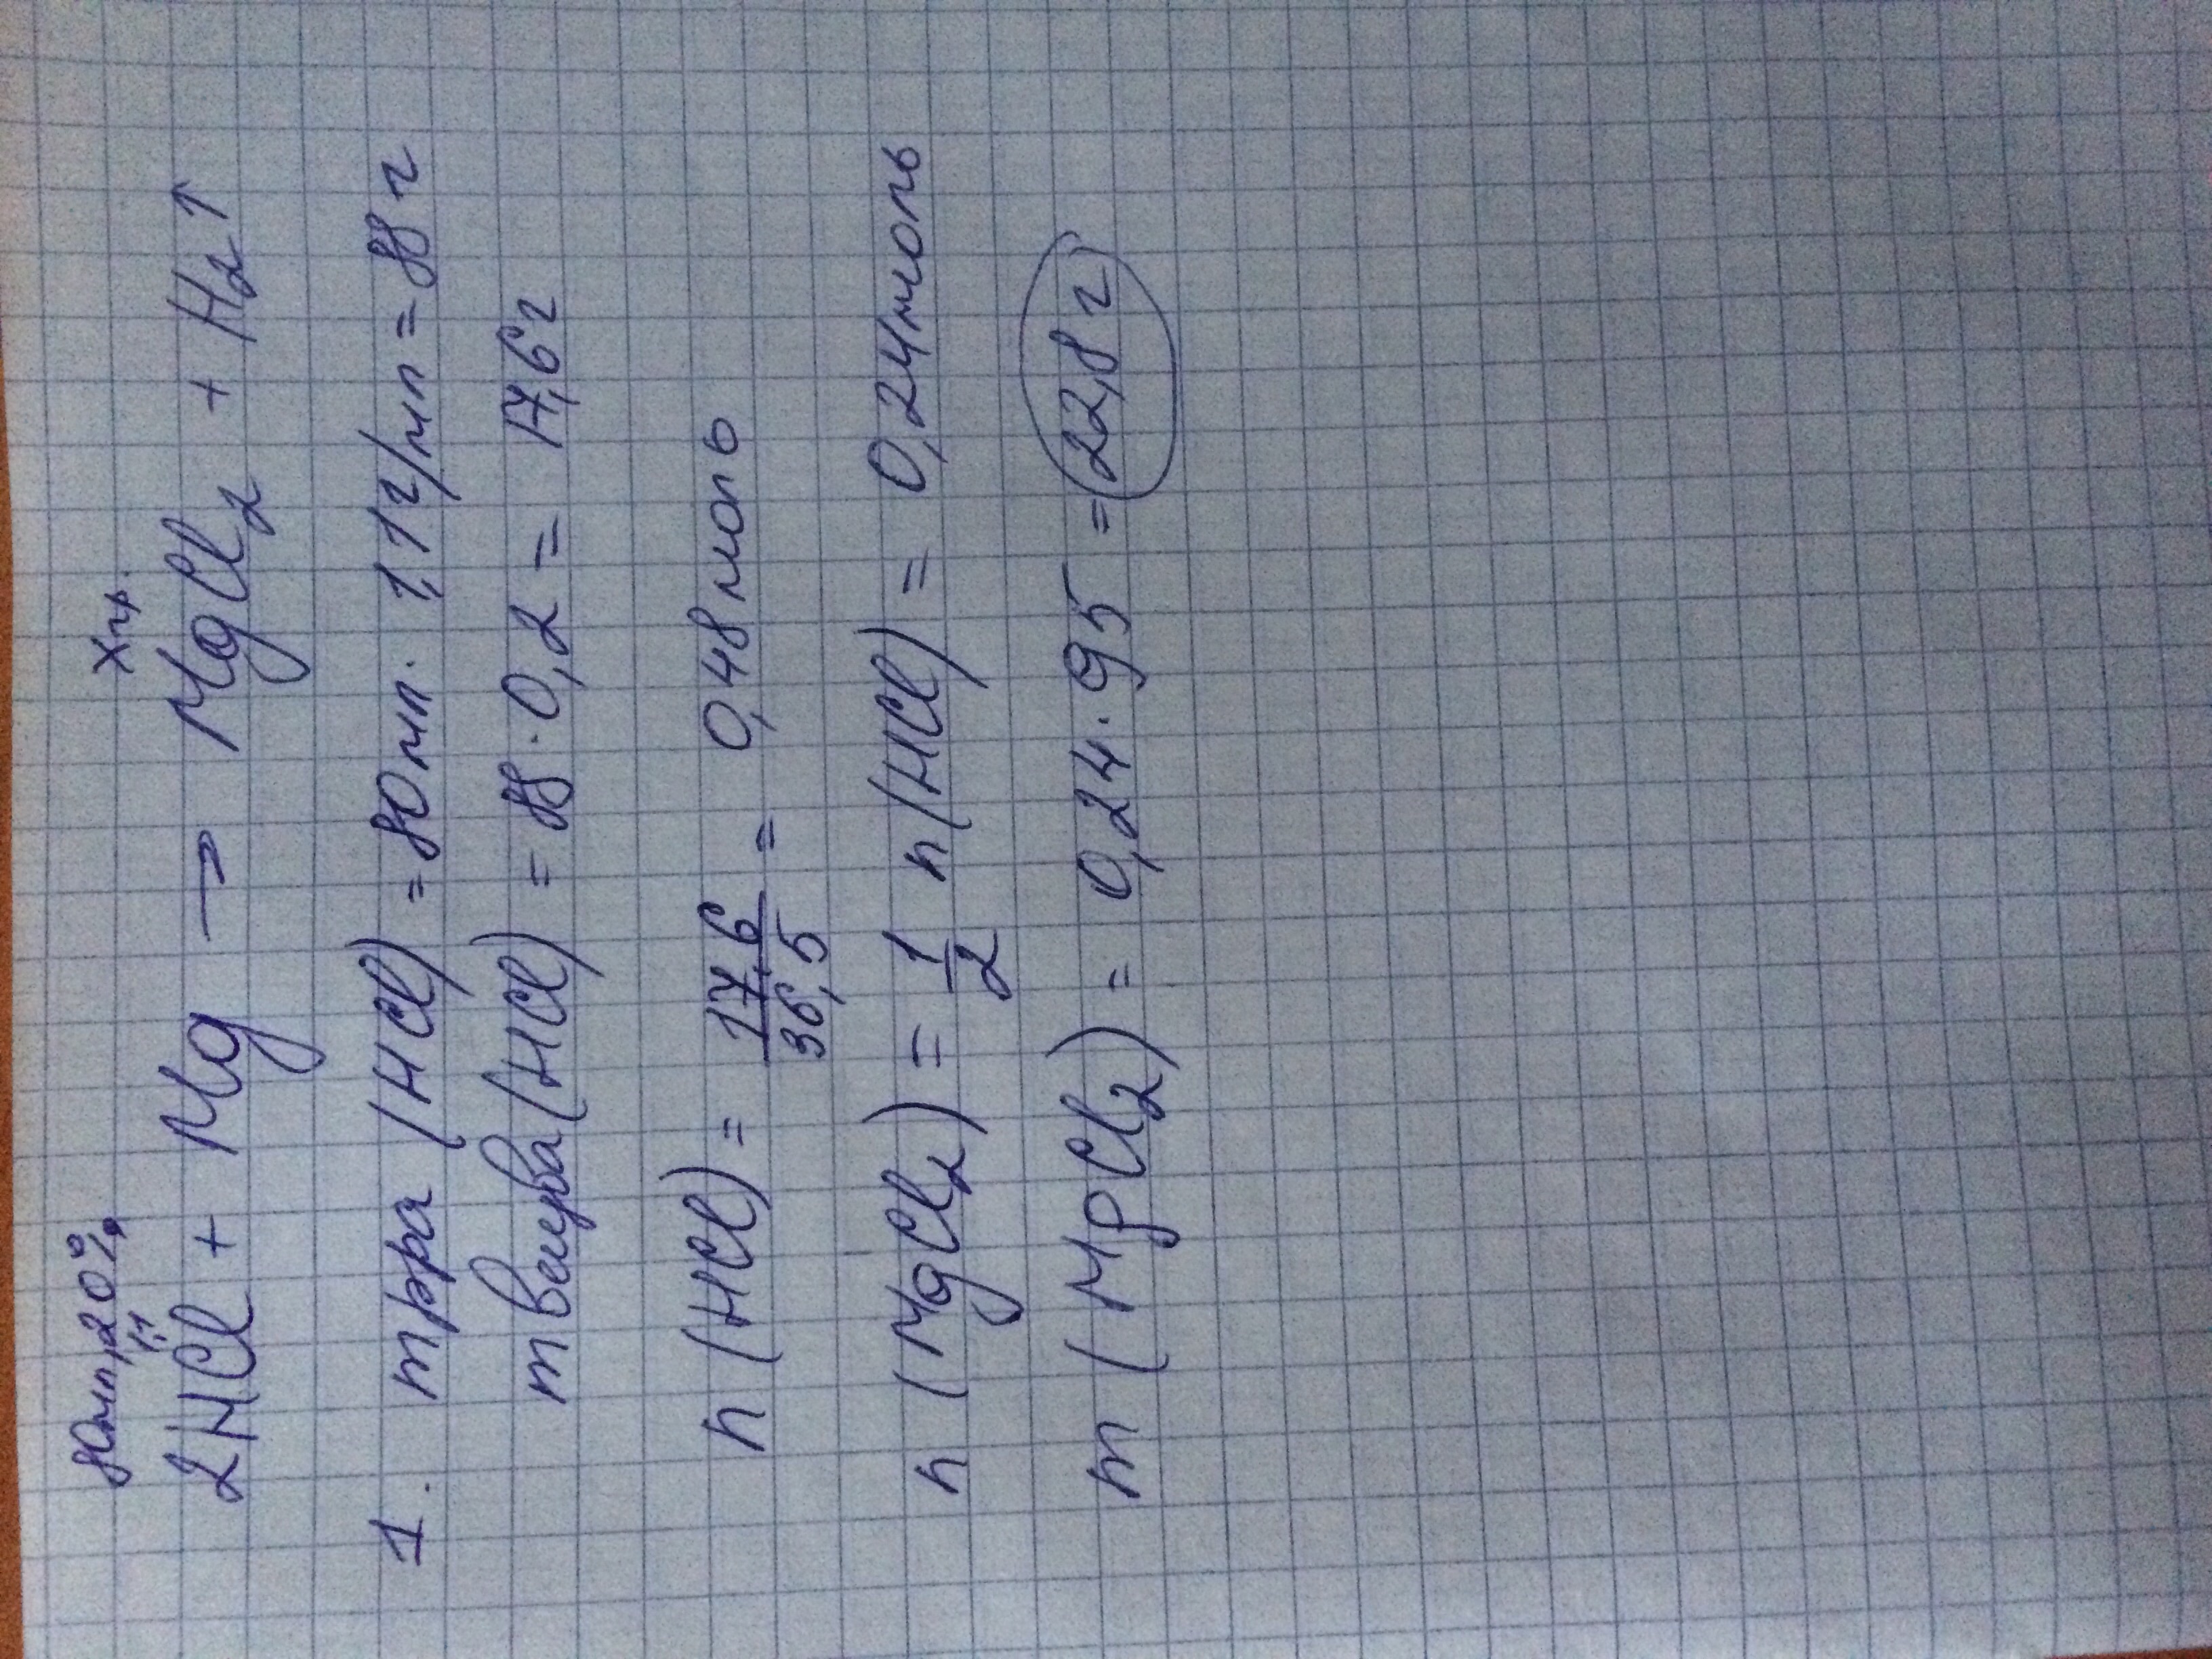 80мл, 20%, Xгр.
1,1
2HCl + Mg → MgCl₂ + H₂↑
1. mрра (HCl) = 80мл · 1,1г/мл = 88 г
mвещ-ва(HCl) = 88 · 0,2 = 17,6г
n (HCl) = 17,6/36,5 = 0,48моль
n (MgCl₂) = 1/2 n(HCl) = 0,24моль
m (MgCl₂) = 0,24 · 95 = 22,8 г